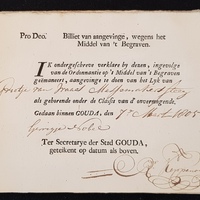 Pro Deo. Billiet van aangevinge, wegens het
Middel van 't Begraven.
IK ondergeschreve verklare by dezen, ingevolge
van de Ordonnantie op 't Middel van 't Begraven
geëmaneert, aangevinge te doen van het Lyk
van
als gehorende onder de Classis van d'onvermogende.
Gedaan binnen GOUDA, den 7 1805
Ter Secretarye der Stad GOUDA,
geteikent op datum als boven.